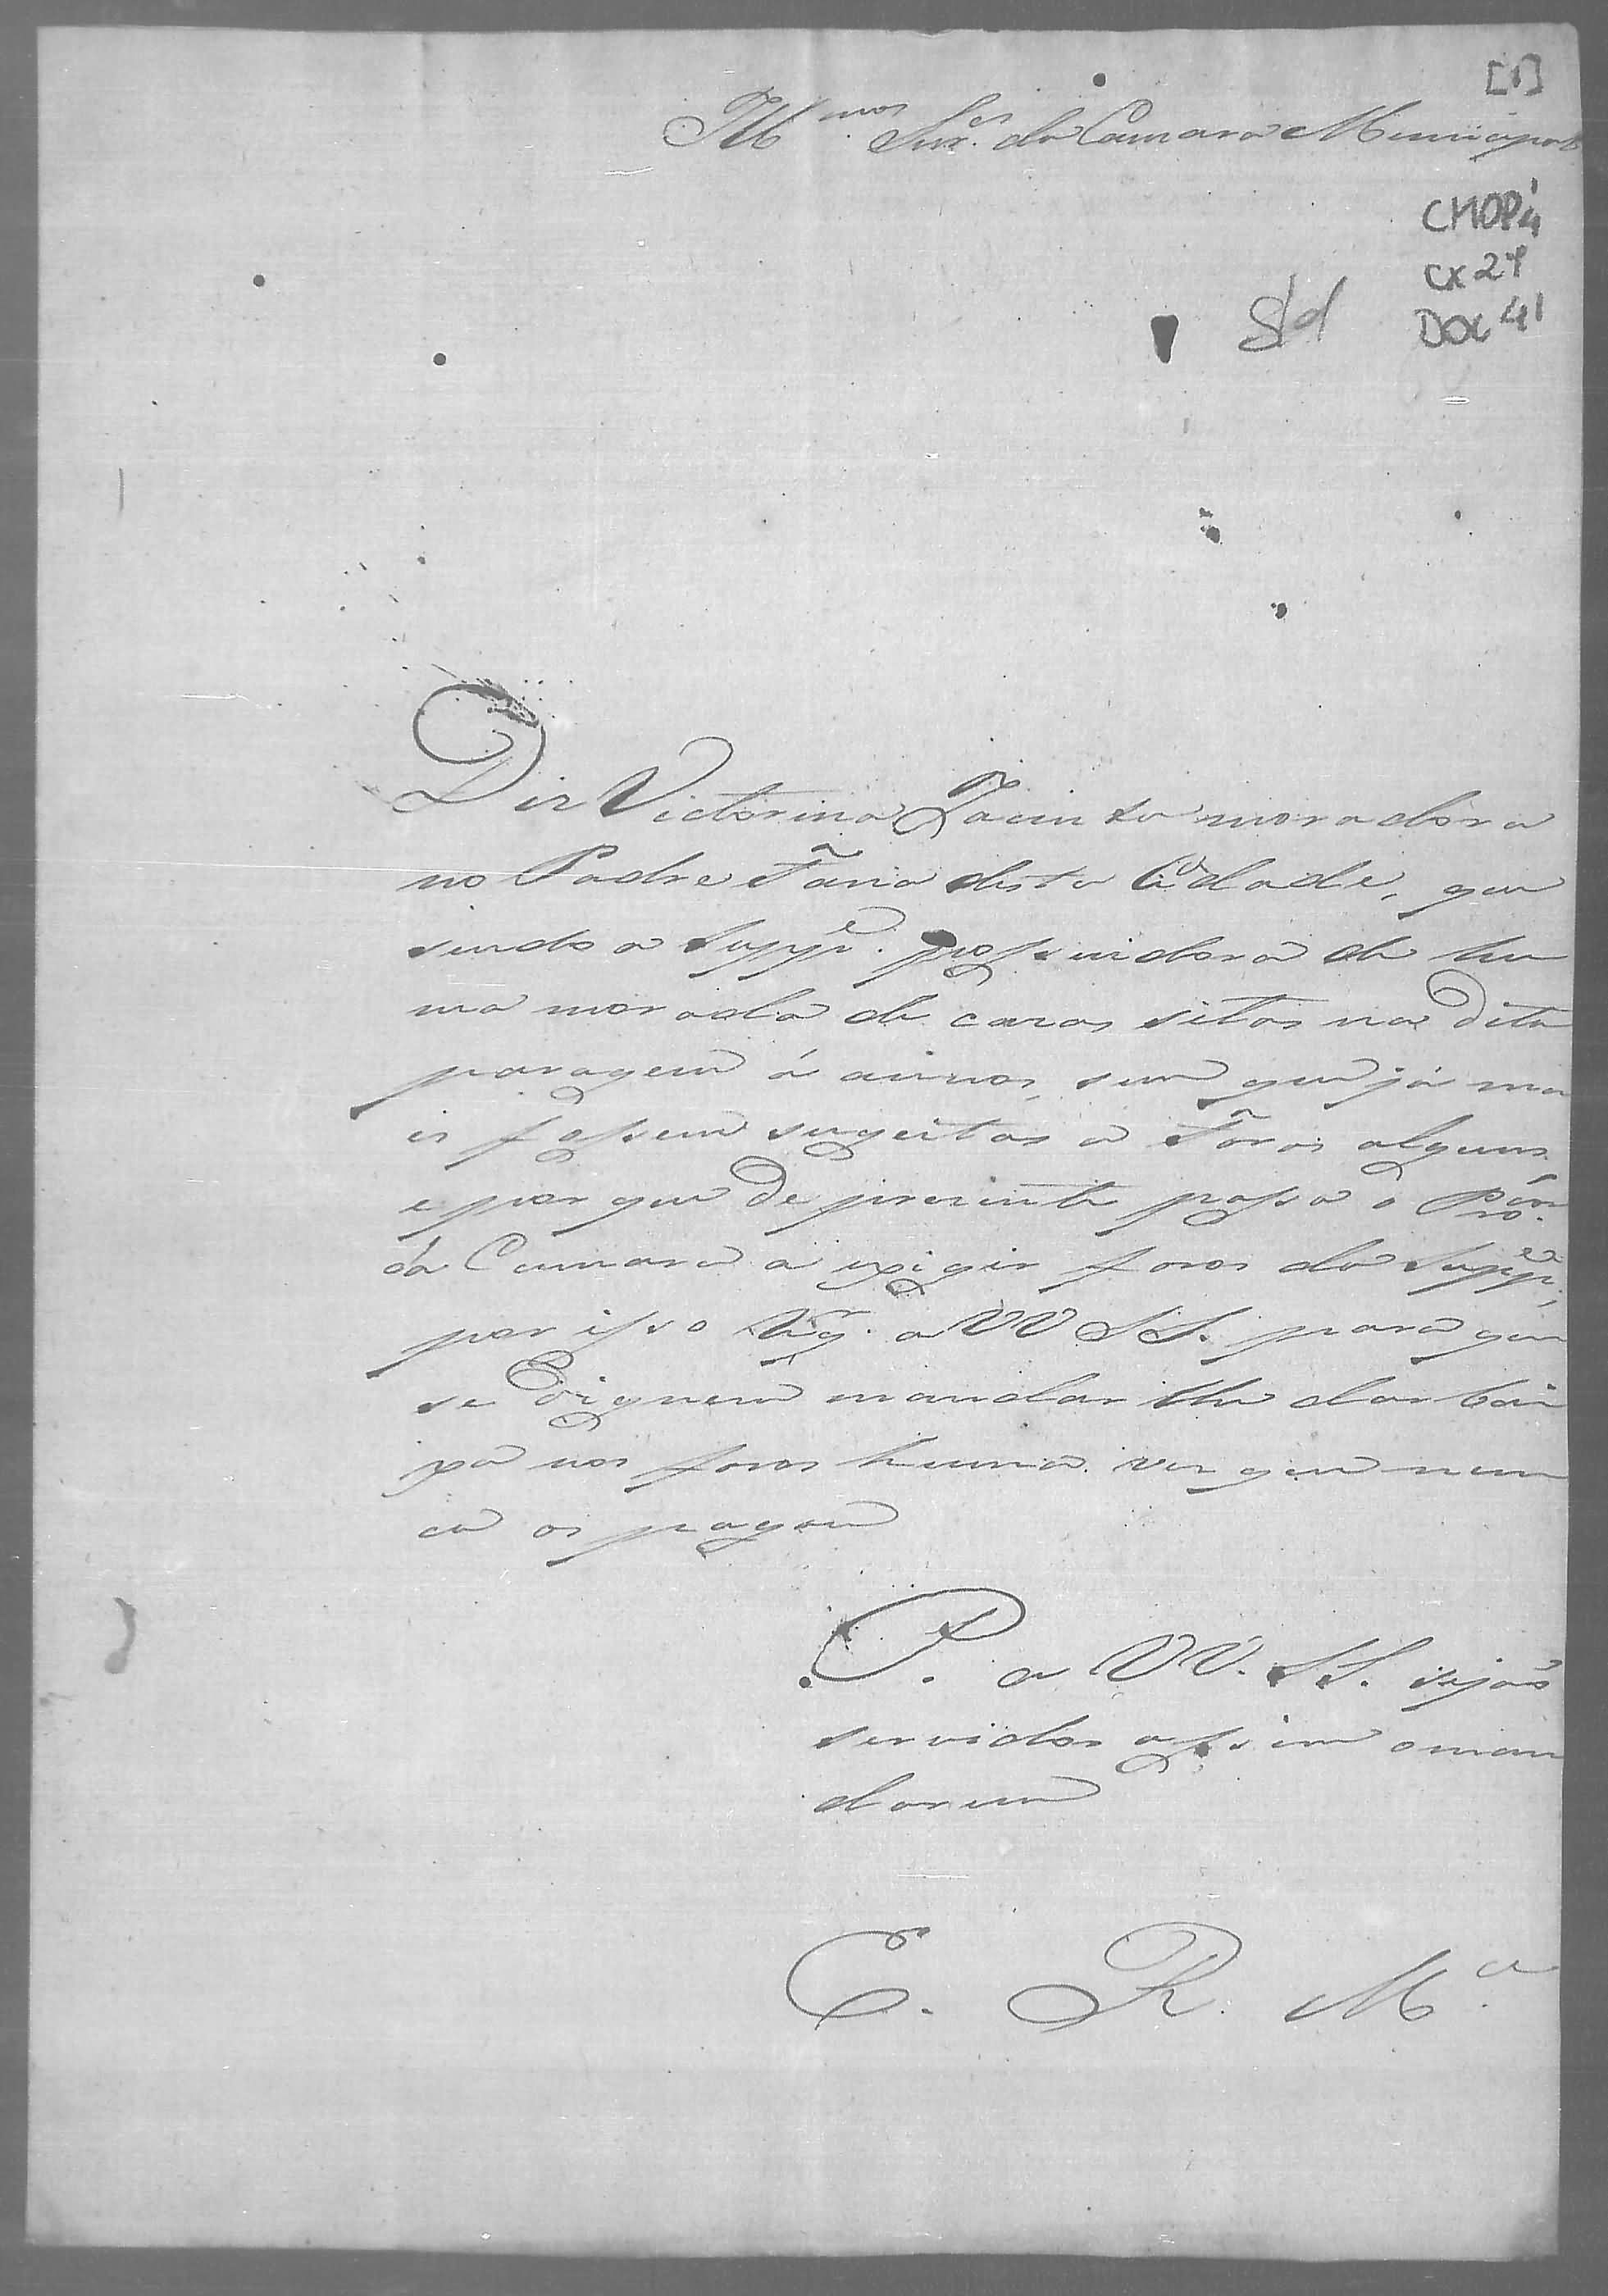 [1]
Ill.mos Snr.es da Camara Municipal
CMOP
cx 24
DOC 41
S/d
Diz Victorina Jacinta moradora
no Padre Faria desta Cidade, que
sendo a Supp.e possuidora de hu
ma morada de cazas sitas na dita
paragem á annos, sem que já ma
is fossem sugeitas a Foros alguns
e por que de prezente passa o Pro.or
da Camara a exigir foros da Supp.e,
por isso a VV SS. para que
se Dignem mandar lhe dar bai
xa nos foros huma vez que nun
ca os pagou
P. a VV. SS. sejão
servidos assim o man
darem
E. R. M.ce